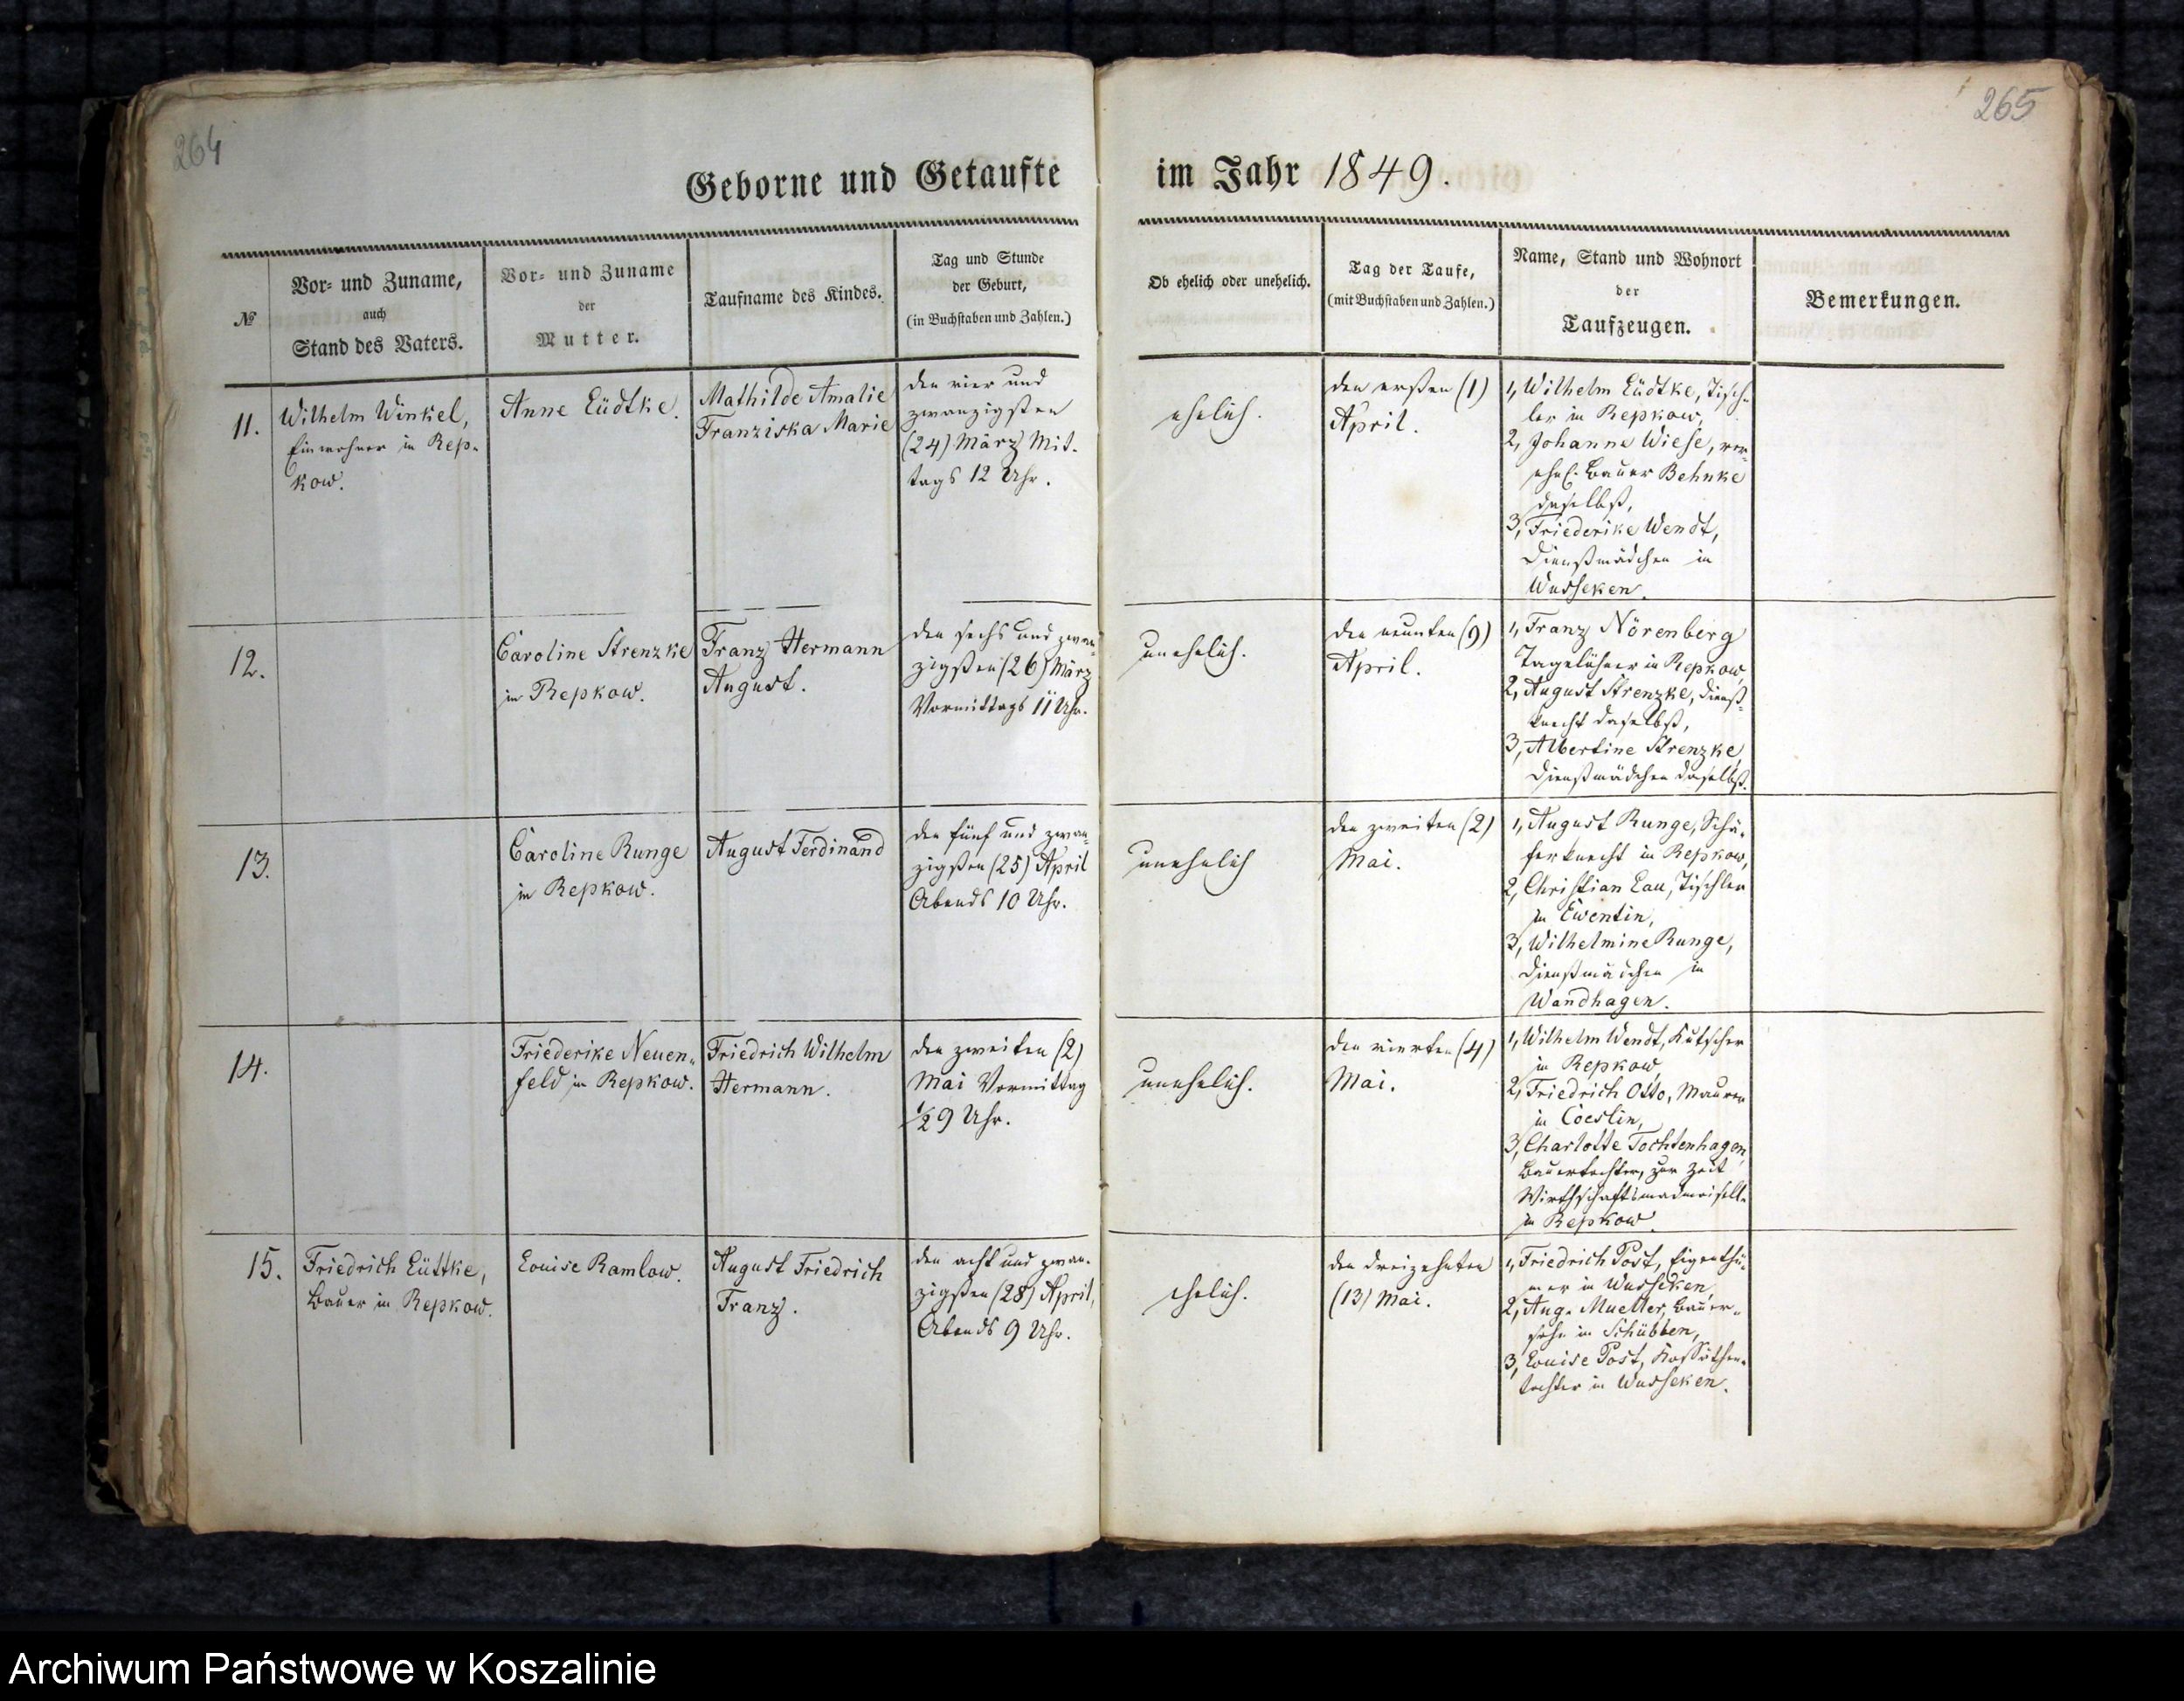 264
265
Geborne und Getaufte im Jahr 1849.
№
Vor- und Zuname,
auch
Stand des Vaters.
Vor- und Zuname
der
Mutter.
Taufname des Kindes.
Tag und Stunde
der Geburt,
(in Buchstaben und Zahlen.)
Ob ehelich oder unehelich.
Tag der Taufe,
(mit Buchstaben und Zahlen.)
Name, Stand und Wohnort
der
Taufzeugen.
Bemerkungen.
11.
Wilhelm Winkel,
Einwohner in Rep-
kow.
Anne Lüdtke.
Mathilde Amalie
Franziska Marie
den vier und
zwanzigsten
(24) März Mit-
tags 12 Uhr.
ehelich.
den ersten (1)
April.
1, Wilhelm Lüdtke, Tisch-
ler in Repkow,
2, Johanne Wiese, ver-
ehel. Bauer Behnke
daselbst,
3, Friederike Wendt,
Dienstmädchen in
Wusseken.
12.
Caroline Strenzke
in Repkow.
Franz Hermann
August.
den sechs und zwan-
zigsten (26) März
Vormittags 11 Uhr.
unehelich.
den neunten (9)
April.
1, Franz Nörenberg
Tagelöhner in Repkow,
2, August Strenzke, Dienst-
knecht daselbst,
3, Albertine Strenzke
Dienstmädchen daselbst.
13.
Caroline Runge
in Repkow.
August Ferdinand
den fünf und zwan-
zigsten (25) April
Abends 10 Uhr.
unehelich
den zweiten (2)
Mai.
1, August Runge, Schä-
ferknecht in Repkow,
2, Christian Lau, Tischler
in Ewentin,
3, Wilhelmine Runge,
Dienstmädchen in
Wandhagen.
14.
Friederike Neuen-
feld in Repkow.
Friedrich Wilhelm
Hermann.
den zweiten (2)
Mai Vormittag
1/2 9 Uhr.
unehelich.
den vierten (4)
Mai.
1, Wilhelm Wendt, Kutscher
in Repkow,
2, Friedrich Otto, Maurer
in Coeslin,
3, Charlotte Tochtenhagen,
Bauertochter, zur Zeit
Wirthschaftsmademoiselle
in Repkow.
15.
Friedrich Lüttke,
Bauer in Repkow.
Louise Ramlow.
August Friedrich
Franz.
den acht und zwan-
zigsten (28) April,
Abends 9 Uhr.
ehelich.
den dreizehnten
(13) Mai.
1, Friedrich Post, Eigenthü-
mer in Wusseken,
2, Aug. Mueller, Bauer-
sohn in Schübben,
3, Louise Post, Kossäthen-
tochter in Wusseken.
Archiwum Państwowe w Koszalinie